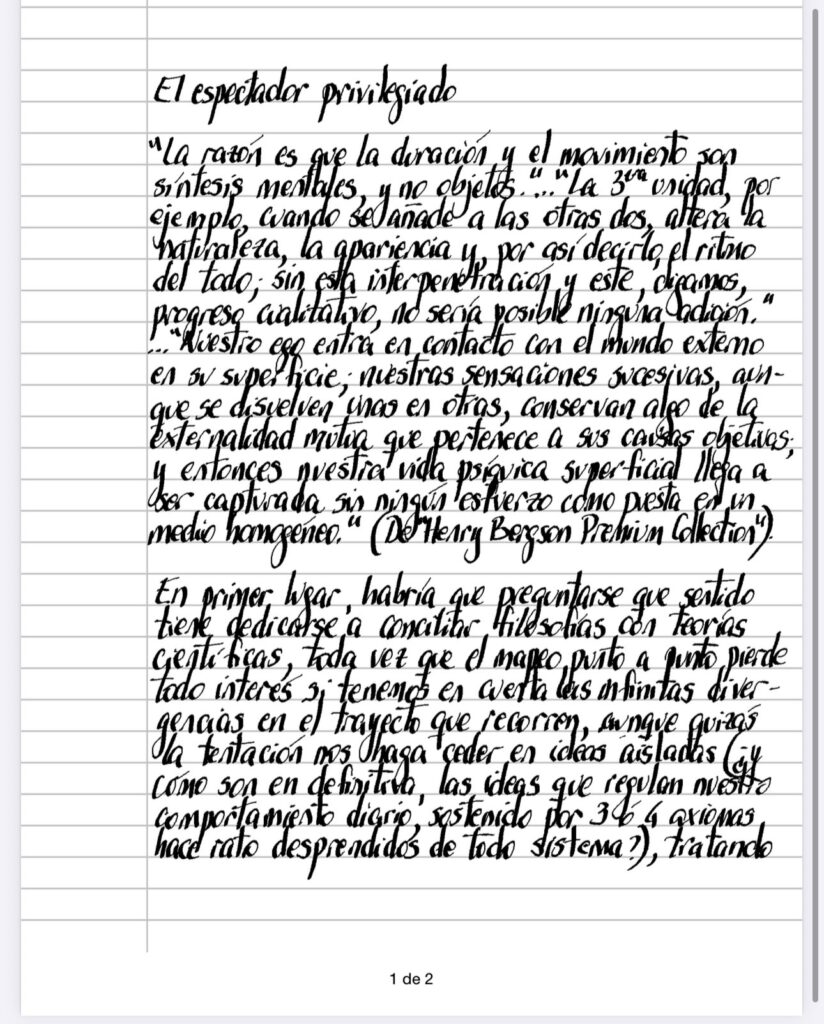 El espectador privilegiado
"La razón es que la duración y el movimiento son
síntesis mentales, y no objetos."..."La 3era unidad, por
ejemplo, cuando se añade a las otras dos, altera la
naturaleza, la apariencia y, por así decirlo, el ritmo
del todo; sin esta interpenetración y este, digamos,
progreso cualitativo, no sería posible ninguna adición."
..."Nuestro ego entra en contacto con el mundo externo
en su superficie; nuestras sensaciones sucesivas, aun-
que se disuelven unas en otras, conservan algo de la
externalidad mutua que pertenece a sus causas objetivas;
y entonces nuestra vida psíquica superficial llega a
ser capturada sin ningún esfuerzo como puesta en un
medio homogéneo." (De "Henry Bergson Premium Collection")
En primer lugar, habría que preguntarse que sentido
tiene dedicarse a concilitar filosofías con teorías
científicas, toda vez que el mapeo punto a punto pierde
todo interés si tenemos en cuenta las infinitas diver-
gencias en el trayecto que recorren, aunque quizás
la tentación nos haga ceder en ideas aisladas (¿y
cómo son en definitiva, las ideas que regulan nuestro
comportamiento diario, sostenido por 3 ó 4 axiomas
hace rato desprendidos de todo sistema?), tratando
1 de 2